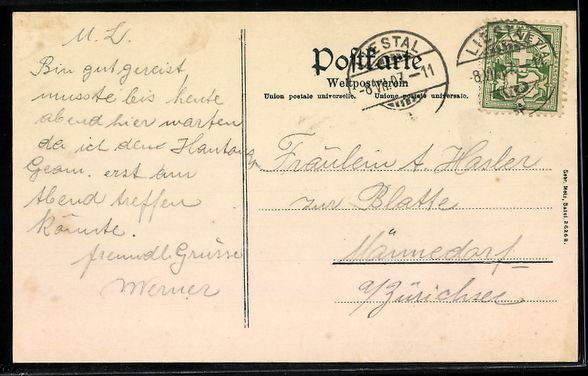 M. L.
Bin gut gereist,
musste bis heute
abend hier warten
da ich den Kantons
Geom. erst am
Abend treffen
könnte.
freundl Grüsse
Werner
Postkarte
Weltpostverein
Union postale universelle. Unione postale universale.
LIESTAL
-8.VII.07.-11
HELVETIA
Fräulein A. Hasler
zur Blatte
Männedorf
a/Zürichsee
Gebr. Metz, Basel.